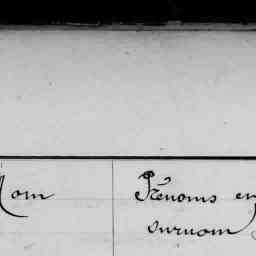 Nom Prénoms et
surnom